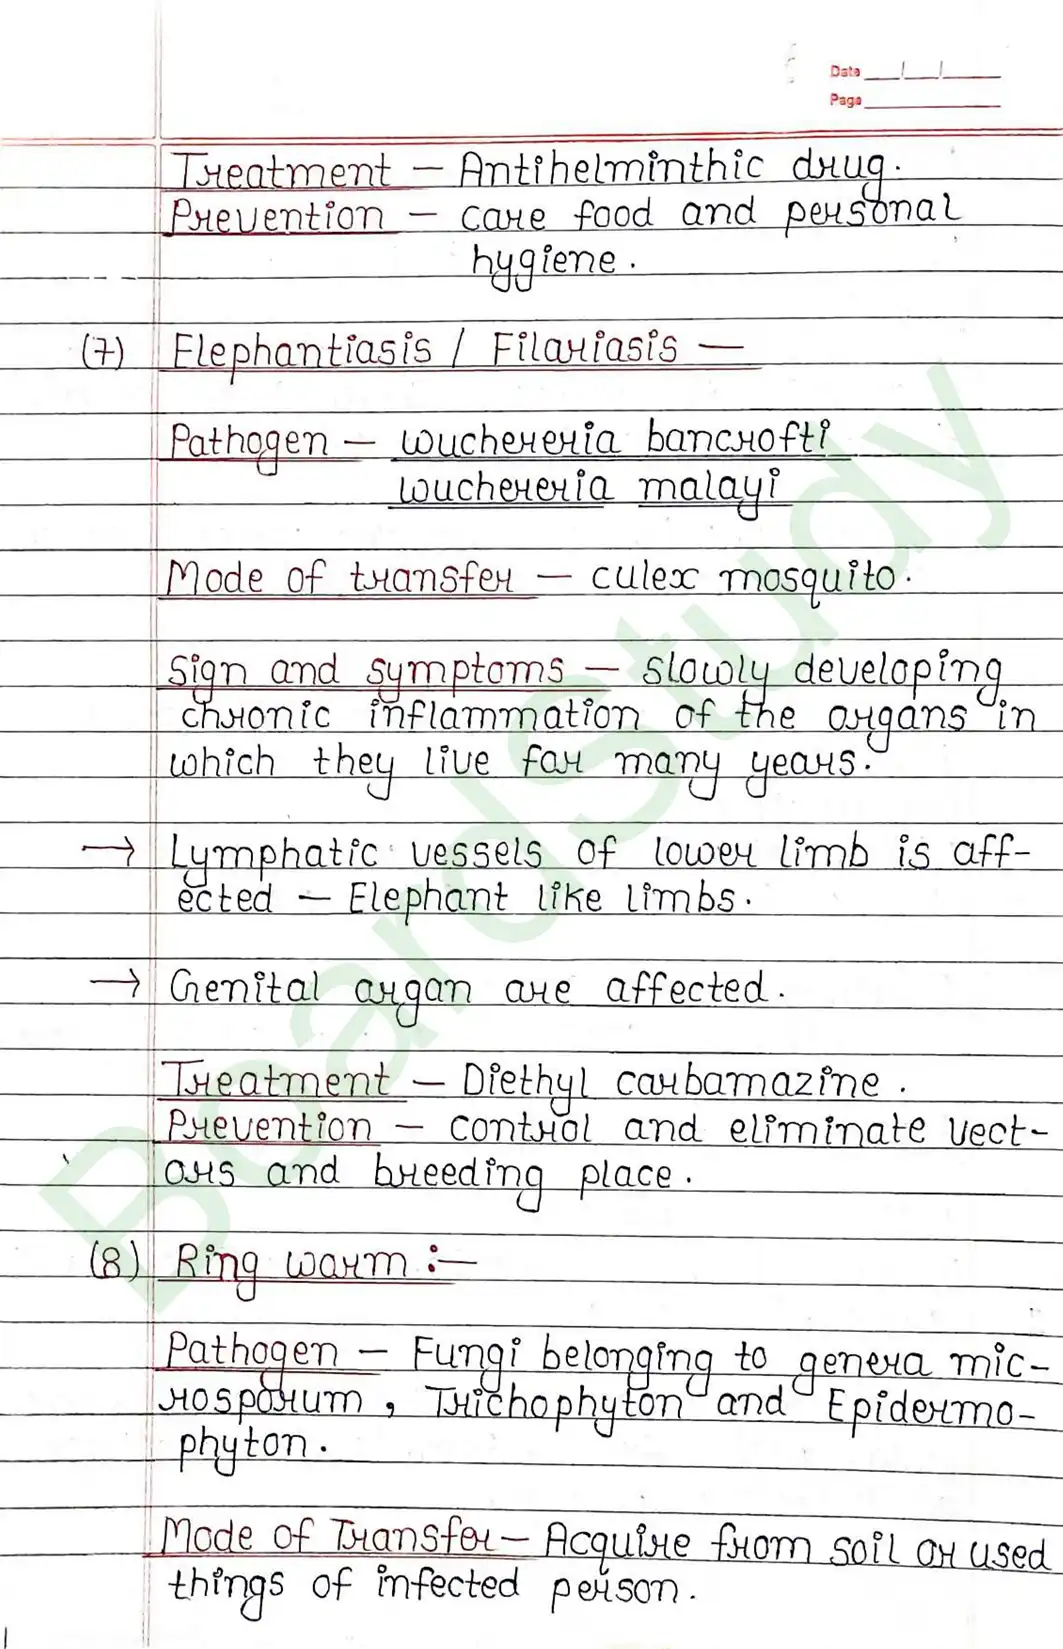 Date
Page
Treatment — Antihelminthic drug.
Prevention — care food and personal
hygiene.
(7) Elephantiasis / Filariasis —
Pathogen — wuchereria bancrofti
wuchereria malayi
Mode of transfer — culex mosquito.
Sign and symptoms — slowly developing
chronic inflammation of the organs in
which they live for many years.
→ Lymphatic vessels of lower limb is aff-
ected — Elephant like limbs.
→ Genital organ are affected.
Treatment — Diethyl carbamazine.
Prevention — control and eliminate vect-
ors and breeding place.
(8) Ring warm :—
Pathogen — Fungi belonging to genera mic-
rosporum, Trichophyton and Epidermo-
phyton.
Mode of Transfer — Acquire from soil or used
things of infected person.
BoardStudy